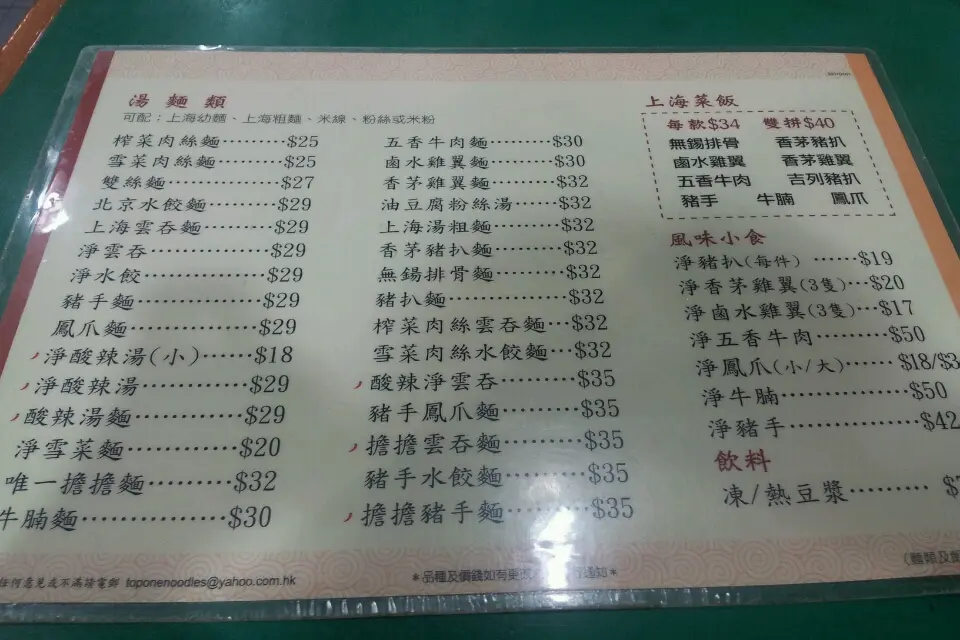 湯麵類
可配：上海幼麵、上海粗麵、米線、粉絲或米粉
榨菜肉絲麵………$25
雪菜肉絲麵………$25
雙絲麵……………$27
北京水餃麵………$29
上海雲吞麵………$29
淨雲吞……………$29
淨水餃……………$29
豬手麵……………$29
鳳爪麵……………$29
淨酸辣湯(小)……$18
淨酸辣湯…………$29
酸辣湯麵…………$29
淨雪菜麵…………$20
唯一擔擔麵………$32
牛腩麵……………$30
五香牛肉麵………$30
鹵水雞翼麵………$30
香茅雞翼麵………$32
油豆腐粉絲湯……$32
上海湯粗麵………$32
香茅豬扒麵………$32
無錫排骨麵………$32
豬扒麵……………$32
榨菜肉絲雲吞麵…$32
雪菜肉絲水餃麵…$32
酸辣淨雲吞………$35
豬手鳳爪麵………$35
擔擔雲吞麵………$35
豬手水餃麵………$35
擔擔豬手麵………$35
上海菜飯
每款$34 雙拼$40
無錫排骨 香茅豬扒
鹵水雞翼 香茅雞翼
五香牛肉 吉列豬扒
豬手 牛腩 鳳爪
風味小食
淨豬扒(每件)……$19
淨香茅雞翼(3隻)…$20
淨鹵水雞翼(3隻)…$17
淨五香牛肉………$50
淨鳳爪(小/大)……$18/$3
淨牛腩……………$50
淨豬手……………$42
飲料
凍/熱豆漿………$
任何意見或不滿請電郵 toponenoodles@yahoo.com.hk
＊品種及價錢如有更改 通知＊
(麵類及